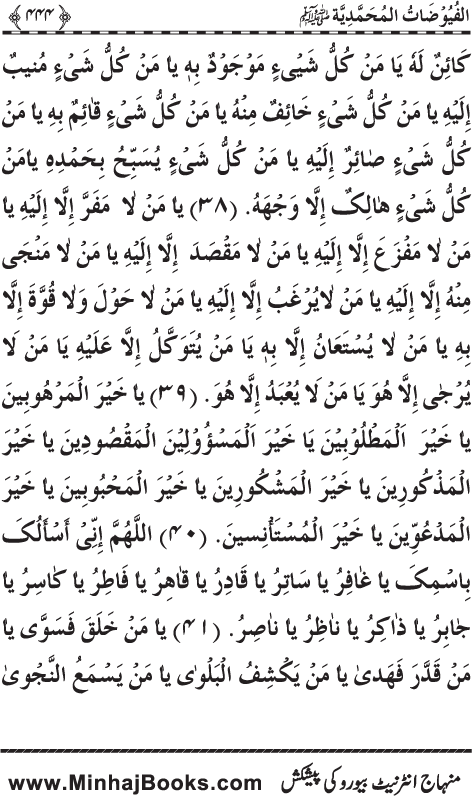 الفُيُوْضَاتُ المُحَمَّدِيَّة ﷺ
﴿۴۴۴﴾
كَائِنٌ لَهٗ يَا مَنْ كُلُّ شَيْءٍ مَوْجُوْدٌ بِهٖ يا مَنْ كُلُّ شَيْءٍ مُنيبٌ
إِلَيْهِ يا مَنْ كُلُّ شَيْءٍ خَائِفٌ مِنْهُ يا مَنْ كُلُّ شَيْءٍ قائِمٌ بِهِ يا مَنْ
كُلُّ شَيْءٍ صائِرٌ إِلَيْهِ يا مَنْ كُلُّ شَيْءٍ يُسَبِّحُ بِحَمْدِهِ يامَنْ
كُلُّ شَيْءٍ هالِكٌ إِلَّا وَجْهَهُ. (۳۸) يا مَنْ لا مَفَرَّ إِلَّا إِلَيْهِ يا
مَنْ لا مَفْزَعَ إِلَّا إِلَيْهِ يا مَنْ لا مَقْصَدَ إِلَّا إِلَيْهِ يا مَنْ لا مَنْجَى
مِنْهُ إِلَّا إِلَيْهِ يا مَنْ لايُرْغَبُ إِلَّا إِلَيْهِ يا مَنْ لا حَوْلَ وَلا قُوَّةَ إِلَّا
بِهِ يا مَنْ لا يُسْتَعانُ إِلَّا بِهٖ يا مَنْ يُتَوَكَّلُ إِلَّا عَلَيْهِ يا مَنْ لَا
يُرْجٰى إِلَّا هُوَ يَا مَنْ لَا يُعْبَدُ إِلَّا هُوَ. (۳۹) يا خَيْرَ الْمَرْهُوبِينَ
يا خَيْرَ الْمَطْلُوْبِيْنَ يَا خَيْرَ الْمَسْؤُوْلِيْنَ الْمَقْصُودِينَ يا خَيْرَ
الْمَذْكُورِينَ يا خَيْرَ الْمَشْكُورِينَ يا خَيْرَ الْمَحْبُوبِينَ يا خَيْرَ
الْمَدْعُوِّينَ يا خَيْرَ الْمُسْتَأْنِسينَ. (۴۰) اللَّهُمَّ إِنِّيْ أَسْأَلُكَ
بِاسْمِكَ يا غافِرُ يا ساتِرُ يا قادِرُ يا قاهِرُ يا فاطِرُ يا كاسِرُ يا
جابِرُ يا ذاكِرُ يا ناظِرُ يا ناصِرُ. (۴۱) يا مَنْ خَلَقَ فَسَوَّى يا
مَنْ قَدَّرَ فَهَدىٰ يا مَنْ يَكْشِفُ الْبَلْوٰى يا مَنْ يَسْمَعُ النَّجْوىٰ
منہاج انٹرنیٹ بیورو کی پیشکش
www.MinhajBooks.com